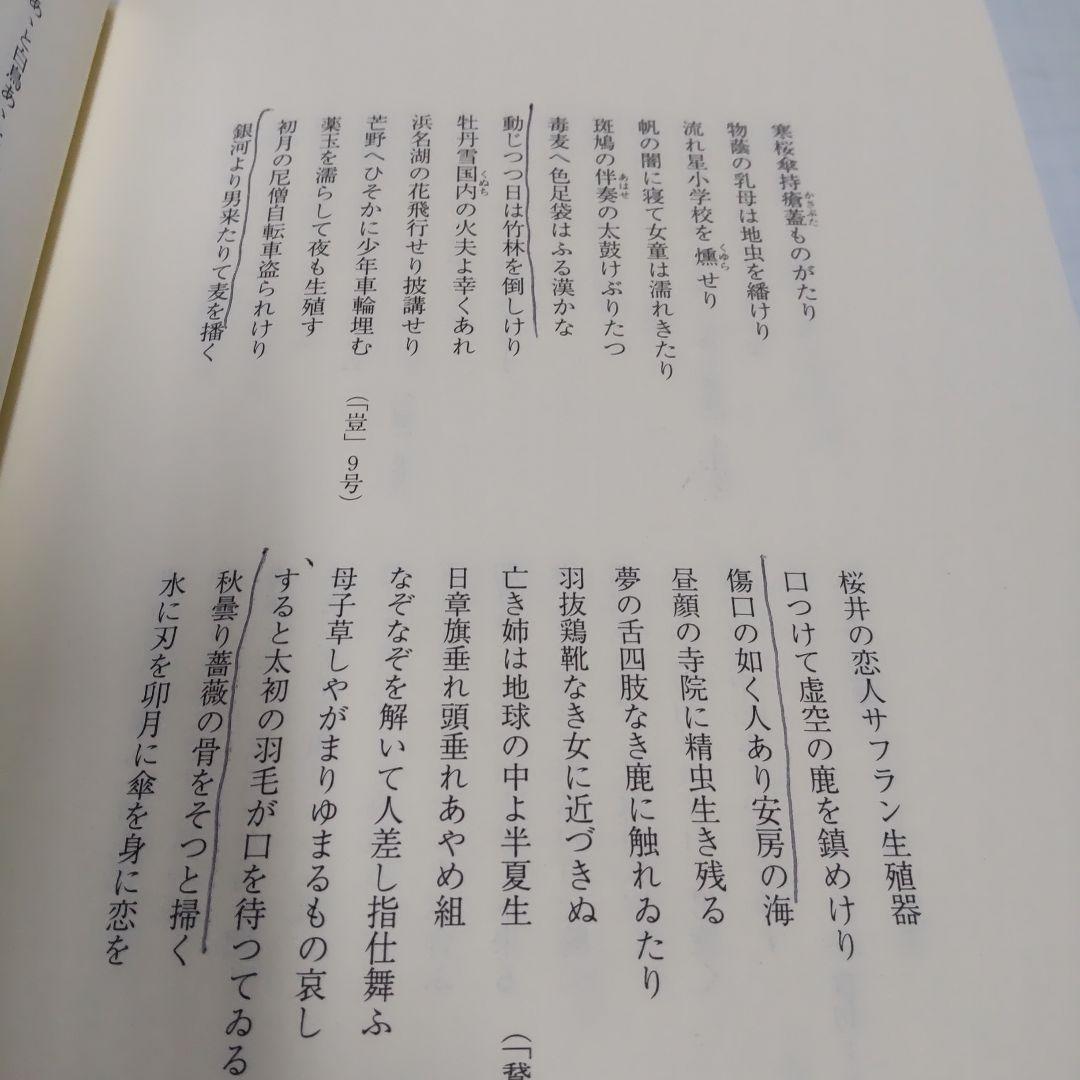 寒桜傘持瘡蓋ものがたり
物蔭の乳母は地虫を繙けり
流れ星小学校を燻せり
帆の闇に寝て女童は濡れきたり
斑鳩の伴奏の太鼓けぶりたつ
毒麦へ色足袋はふる漢かな
動じつつ日は竹林を倒しけり
牡丹雪国内の火夫よ幸くあれ
浜名湖の花飛行せり披講せり
芒野へひそかに少年車輪埋む
薬玉を濡らして夜も生殖す
初月の尼僧自転車盗られけり
銀河より男来たりて麦を播く
(「豈」9号)
桜井の恋人サフラン生殖器
口つけて虚空の鹿を鎮めけり
傷口の如く人あり安房の海
昼顔の寺院に精虫生き残る
夢の舌四肢なき鹿に触れゐたり
羽抜鶏靴なき女に近づきぬ
亡き姉は地球の中よ半夏生
日章旗垂れ頭垂れあやめ組
なぞなぞを解いて人差し指仕舞ふ
母子草しやがまりゆまるもの哀し
すると太初の羽毛が口を待つてゐる
秋曇り薔薇の骨をそつと掃く
水に刃を卯月に傘を身に恋を